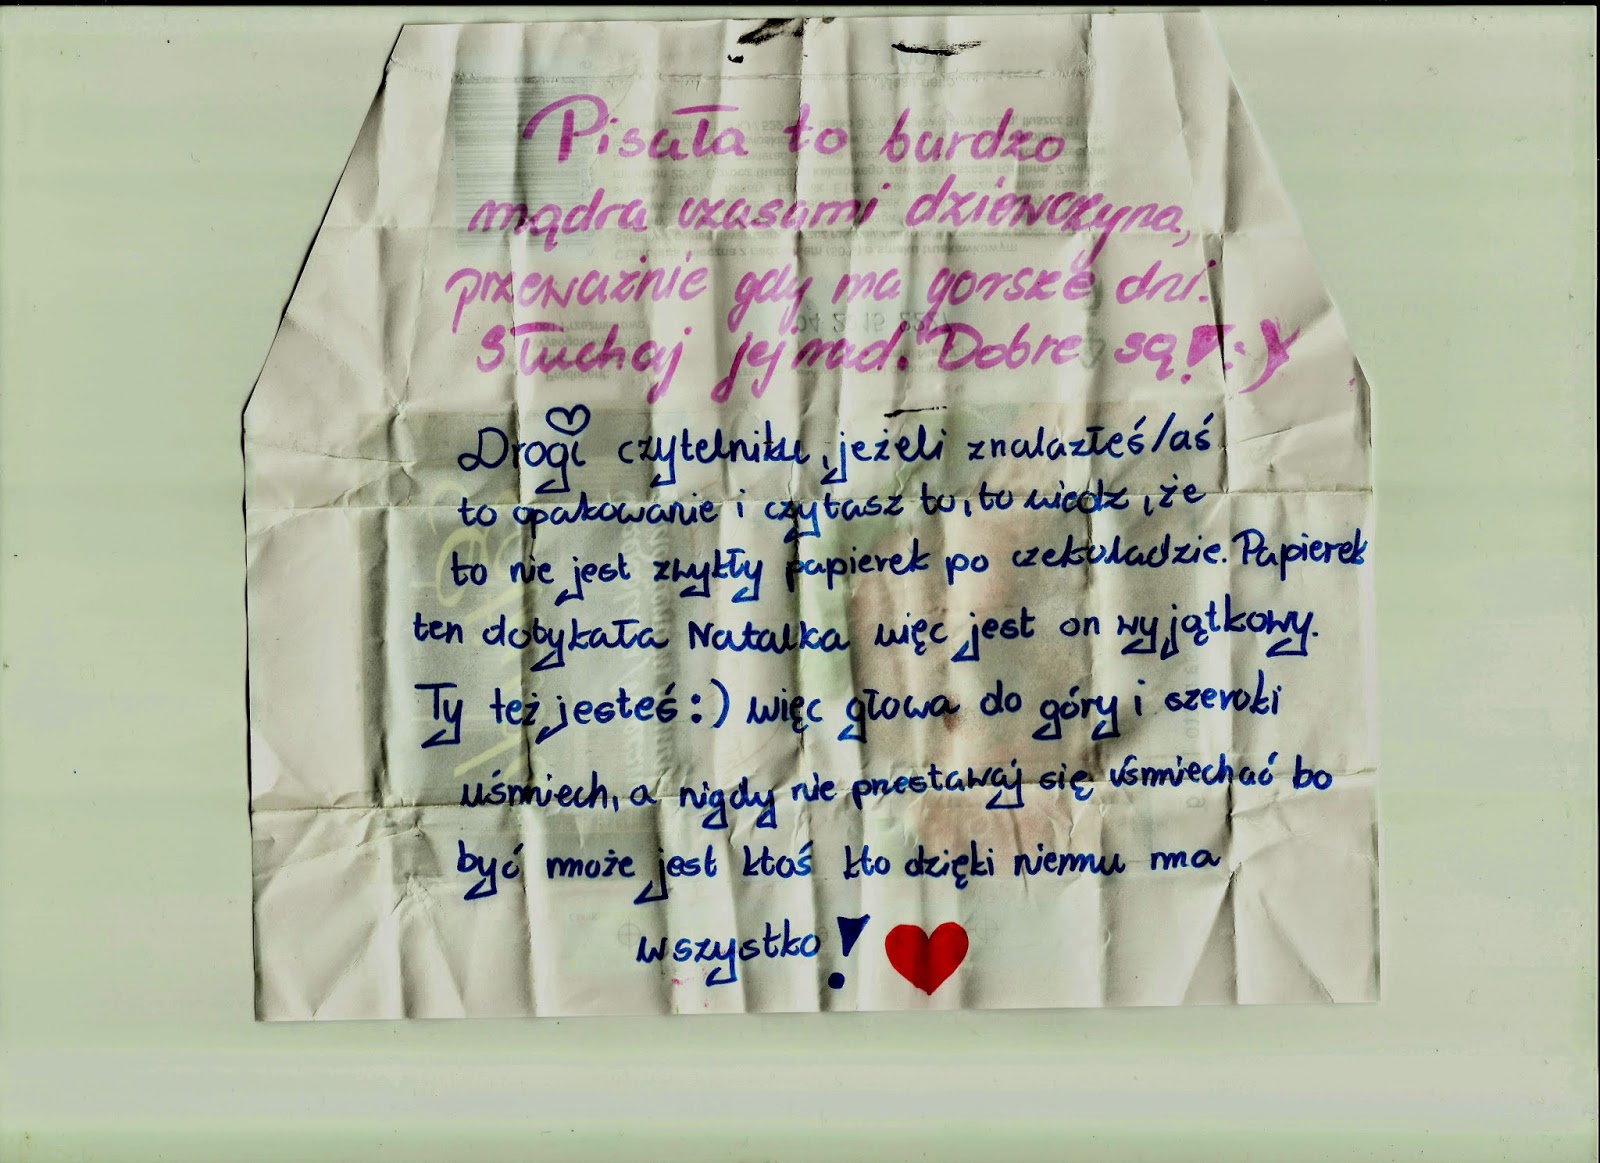 Pisała to bardzo
mądra czasami dziewczyna,
przeważnie gdy ma gorsze dni.
Słuchaj jej rad. Dobre są! :-)
Drogi czytelniku, jeżeli znalazłeś/aś
to opakowanie i czytasz to, to wiedz, że
to nie jest zwykły papierek po czekoladzie. Papierek
ten dotykała Natalka więc jest on wyjątkowy.
Ty też jesteś :) więc głowa do góry i szeroki
uśmiech, a nigdy nie przestawaj się uśmiechać bo
być może jest ktoś kto dzięki niemu ma
wszystko!